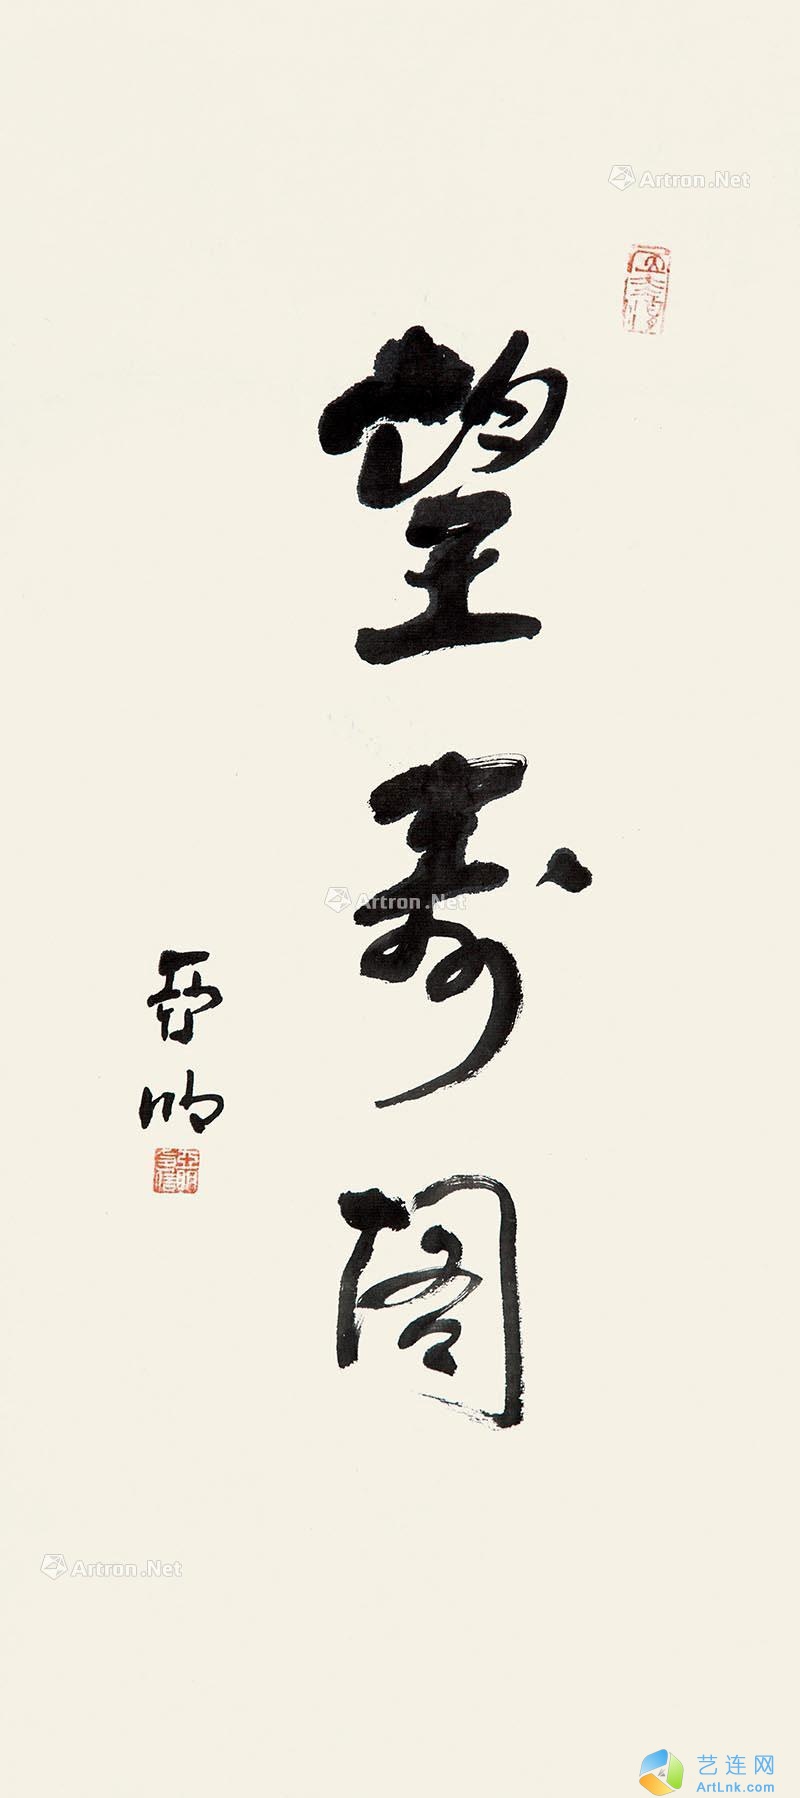 Artron.Net
望寿阁
Artron.Net
亚明
Artron.Net
艺连网
ArtLnk.com